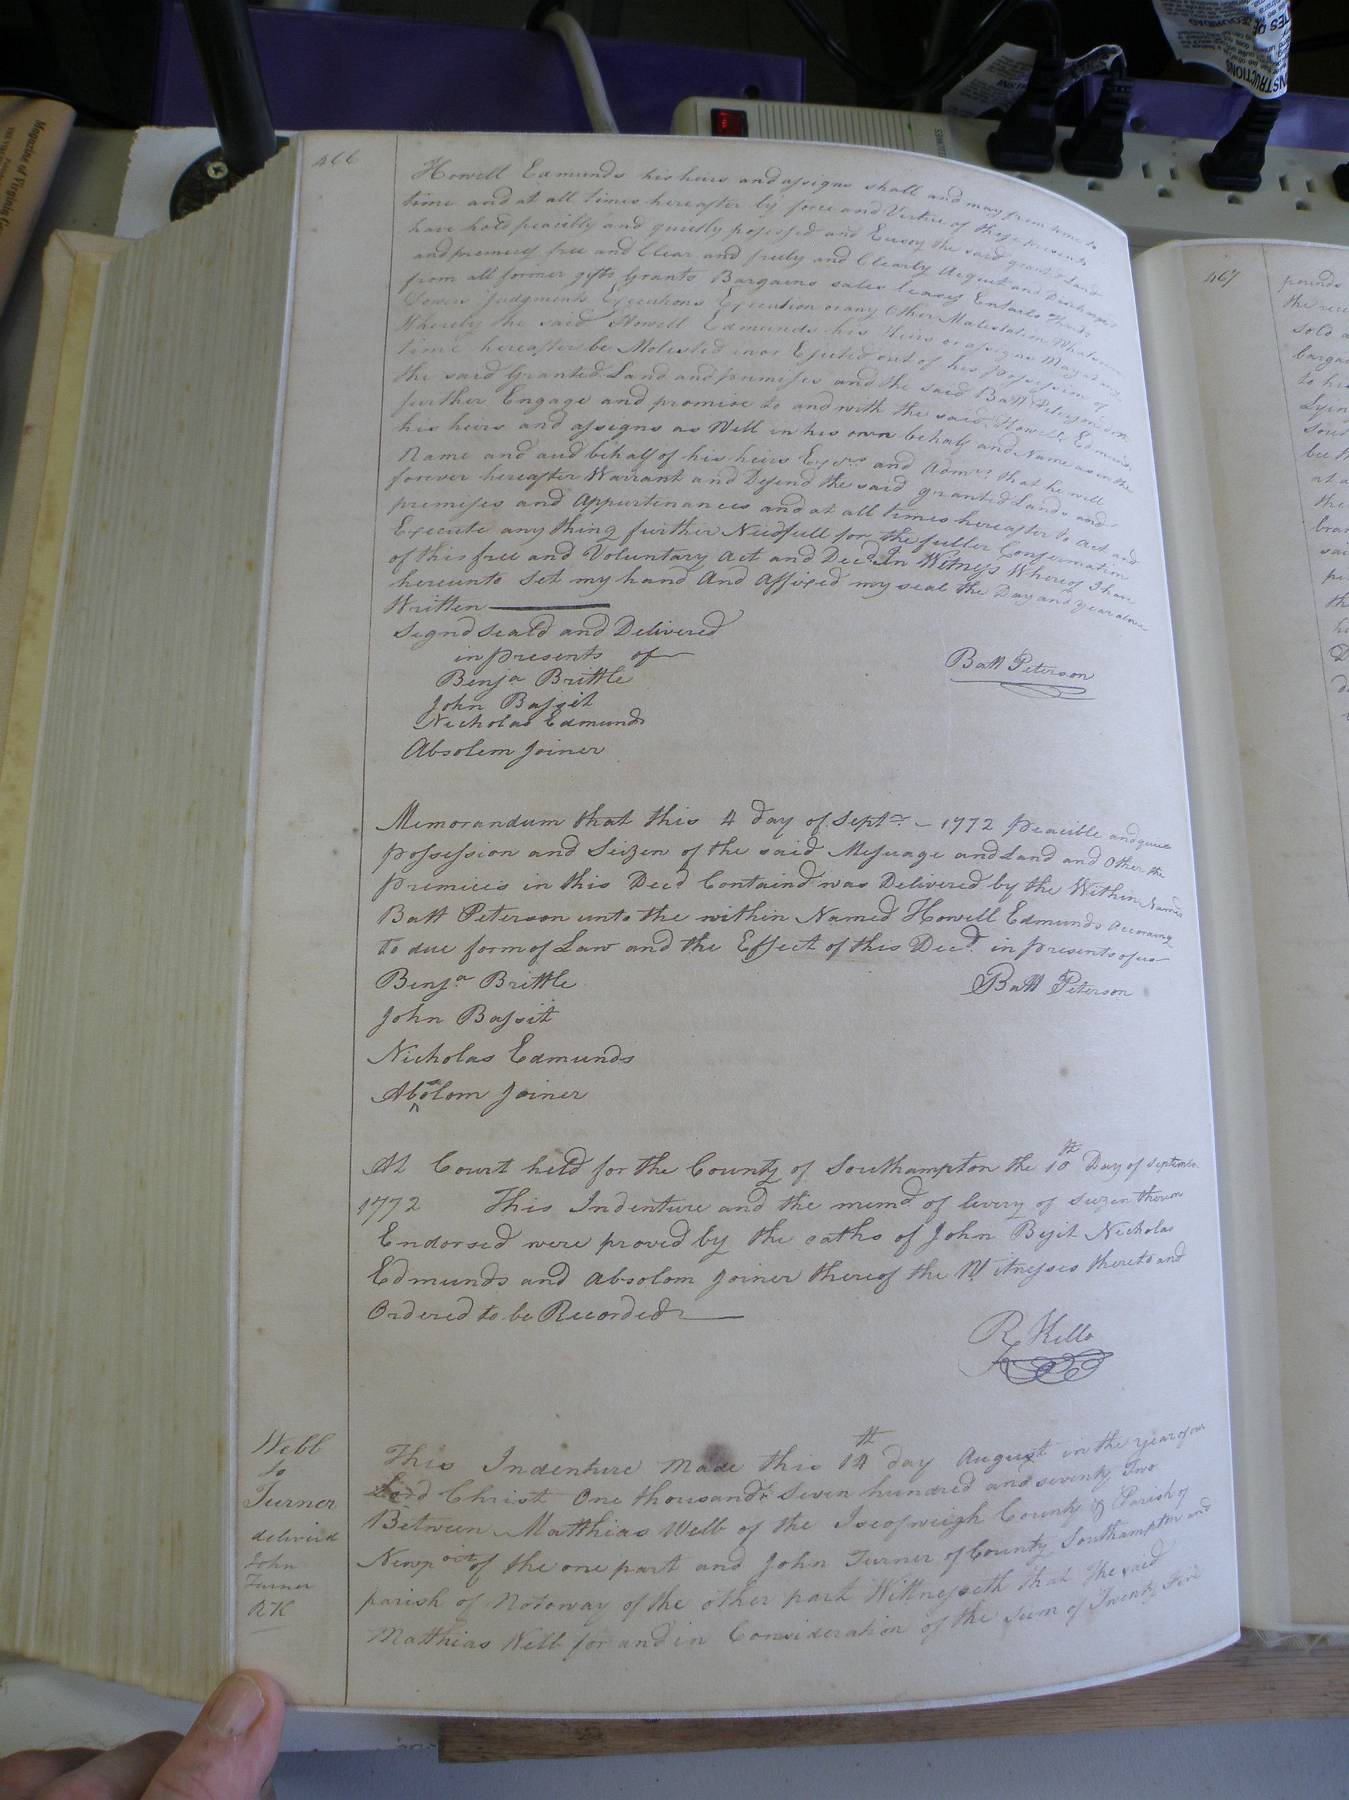 466
Howell Edmunds his heirs and assigns shall and may from time to
time and at all times hereafter by force and Virtue of these presents
have hold peacibly and quietly possessd and Enjoy the said granted Land
and premises free and Clear and freely and Clearly Acquit and Discharged
from all former gifts Grants Bargains sales leases Entails
Dowers Judgments Executions Execution or any Other Molestation Whatsoever
Whereby the said Howell Edmunds his Heirs or assigns May at any
time hereafter be Molested in or Ejected out of his Possession of
the said Granted Land and premises and the said Batt Peterson
further Engage and promise to and with the said Howell Edmunds
his heirs and assigns as Well in his own behalf and Name as in the
Name and and behalf of his heirs Exors and Admrs that he will
forever hereafter Warrant and Defend the said granted Lands and
premises and Appurtinances and at all times hereafter to Act and
Execute any thing further Needfull for the fuller Confermation
of this free and Voluntary Act and Deed In Witness Whereof I have
hereunto Set my hand And Affixed my seal the Day and year above
Written
Signd Seald and Delivered
in presents of
Benja Brittle
John Bassit
Nicholas Edmunds
Absolem Joiner
Batt Peterson
Memorandum that this 4 day of Septr - 1772 peacible and quiet
possession and Seizen of the said Mesuage and Land and Other the
premices in this Deed Containd was Delivered by the Within Named
Batt Peterson unto the within Named Howell Edmunds According
to due form of Law and the Effect of this Deed in presents of us
Benja Brittle
Batt Peterson
John Bassit
Nicholas Edmunds
Absolom Joiner
At Court held for the County of Southampton the 10th Day of September
1772 This Indenture and the memd of livery of seizen thereon
Endorsed were proved by the oaths of John Bysit Nicholas
Edmunds and Absolom Joiner thereof the Witnesses thereto and
Ordered to be Recorded
R Kello
Webb
to
Turner
deliverd
John
Turner
RK
This Indenture Made this 14th day August in the year of our
Lord Christ One thousand Seven hundred and seventy Two
Between Matthias Webb of the Iseofweigh County & Parish of
Newport of the one part and John Turner of County Southampton and
parish of Notoway of the other part Wittnesseth that the said
Matthias Webb for and in Consideration of the Sum of Twenty Five
467
pounds
sold
to his
at a